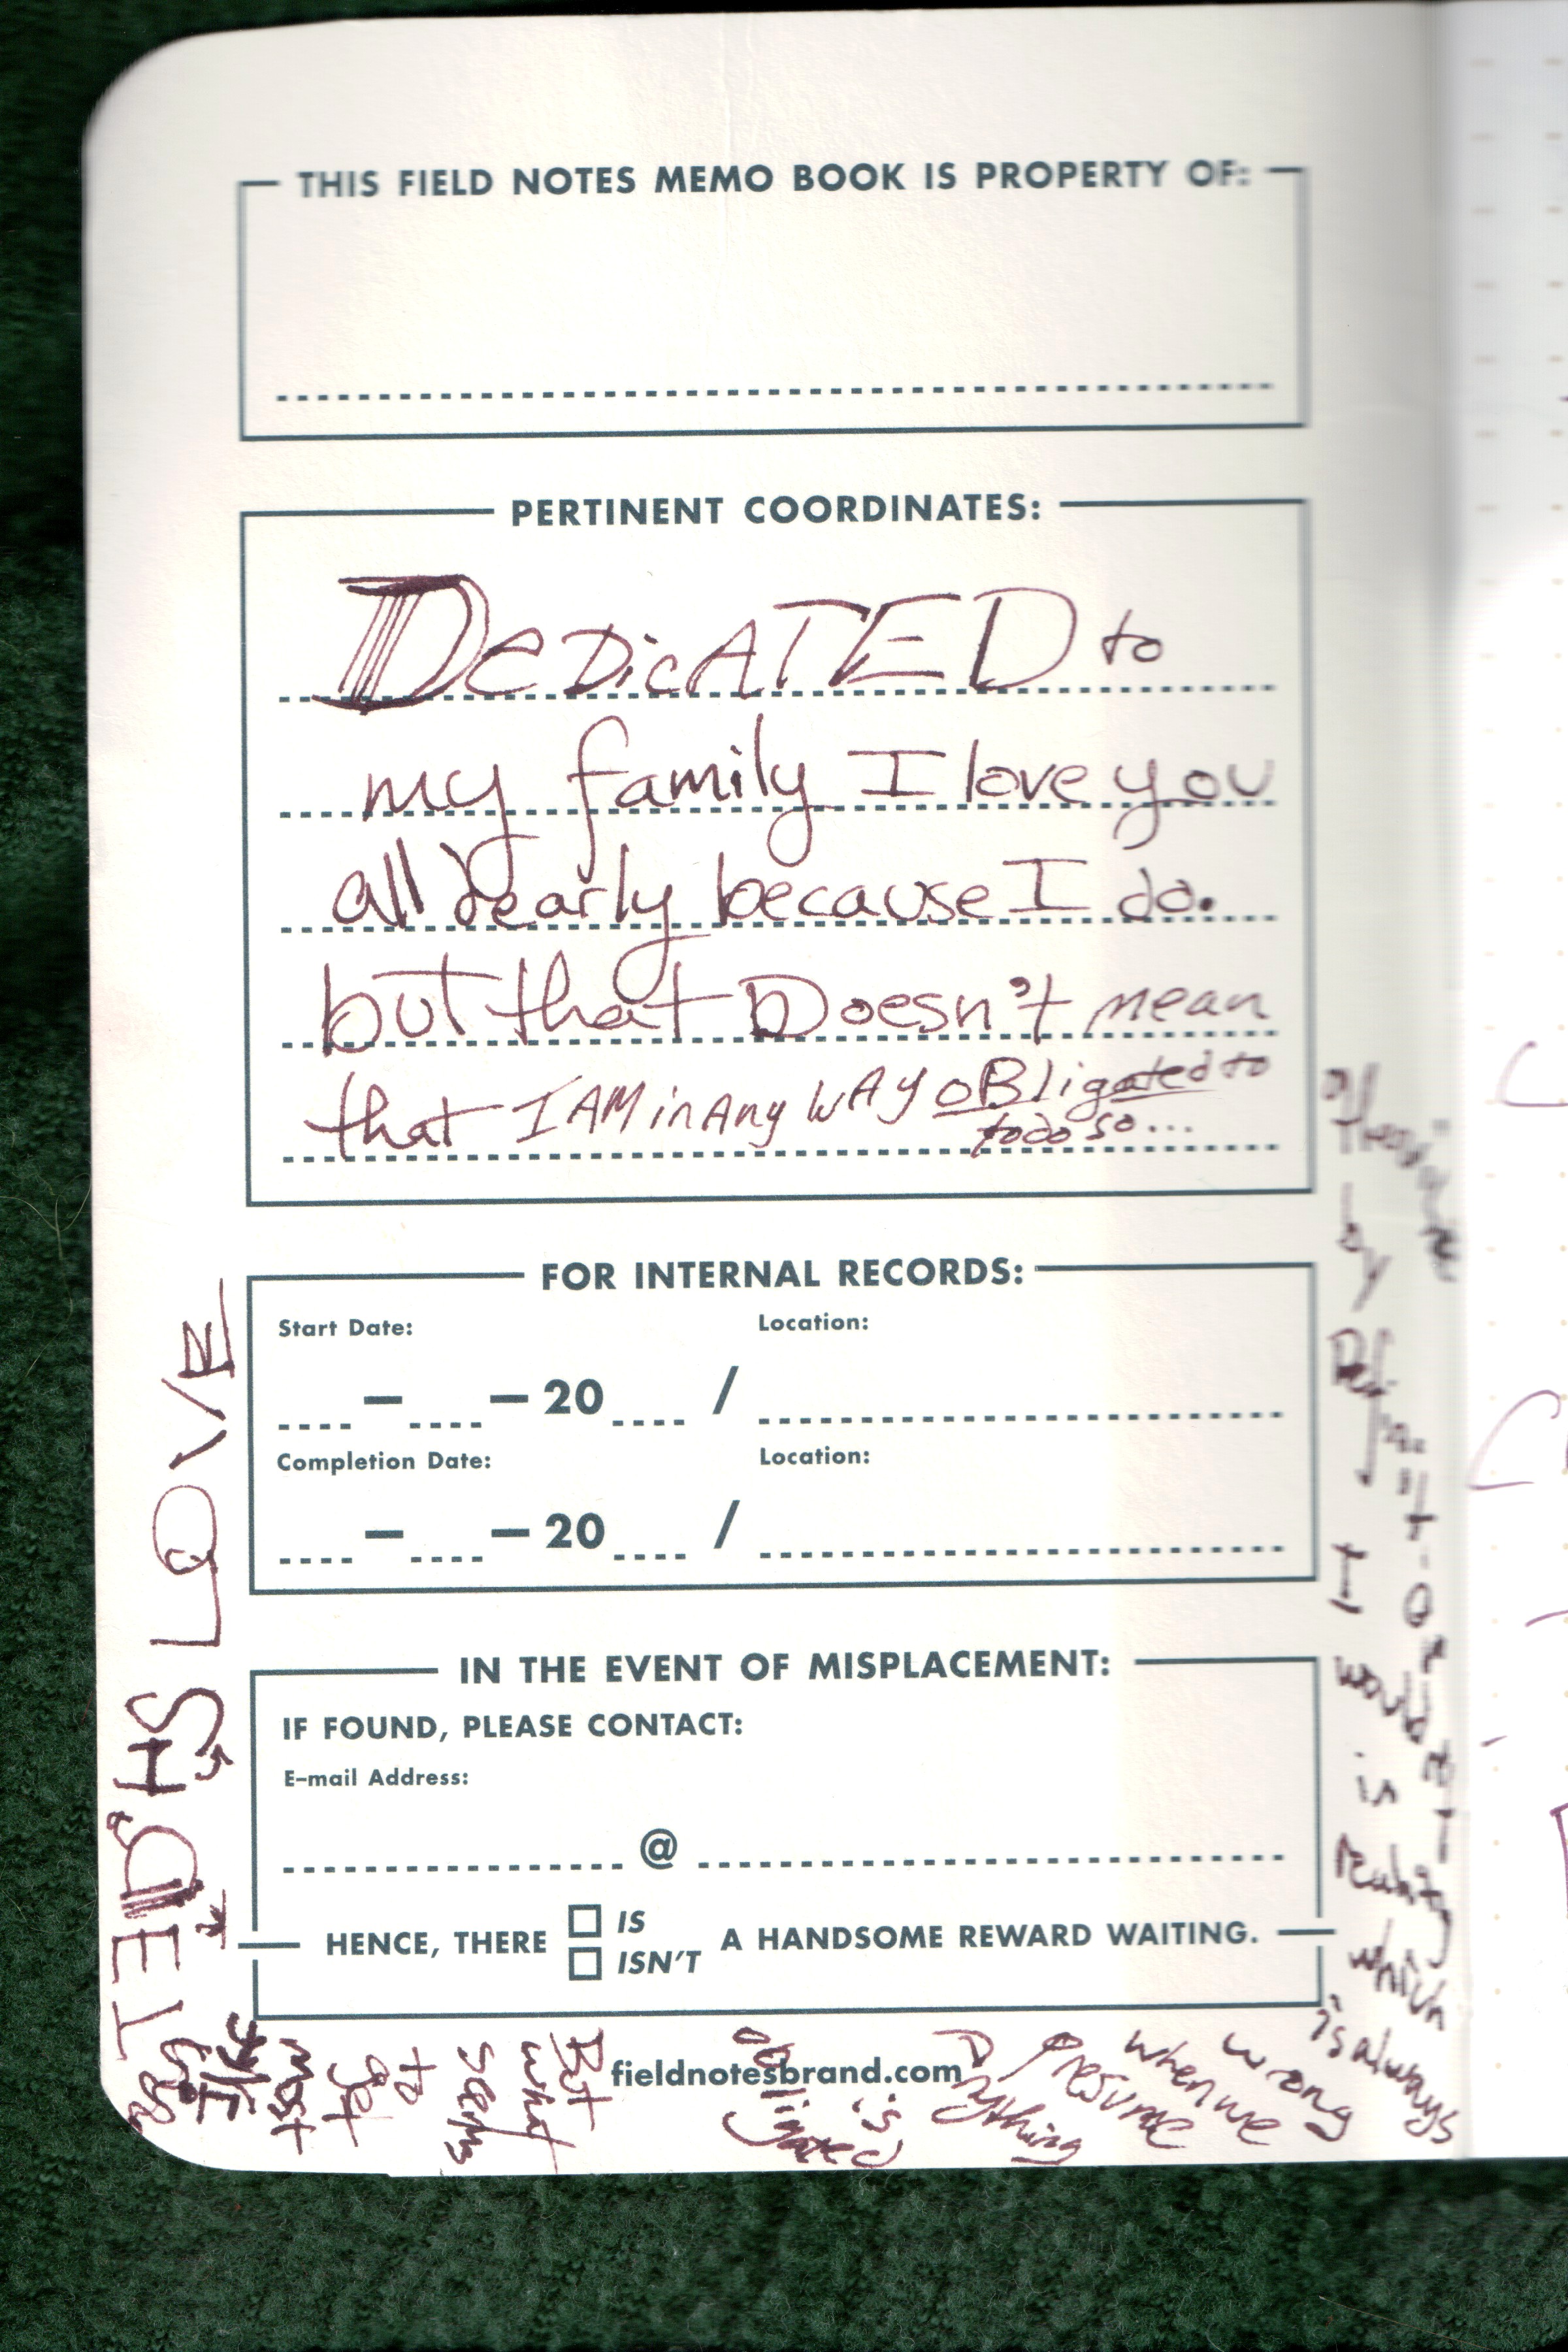 THIS FIELD NOTES MEMO BOOK IS PROPERTY OF:
PERTINENT COORDINATES:
DeDicATED to
my family I love you
all dearly because I do.
but that Doesn't mean
that I AM in Any WAY OBligated to
to do so...
FOR INTERNAL RECORDS:
Start Date:
Location:
– – 20 /
Completion Date:
Location:
– – 20 /
IN THE EVENT OF MISPLACEMENT:
IF FOUND, PLEASE CONTACT:
E-mail Address:
@
HENCE, THERE
IS
ISN'T
A HANDSOME REWARD WAITING.
fieldnotesbrand.com
by
I
is
which
is always
wrong
when we
presume
is
But
what
seems
to
get
most
LOVE